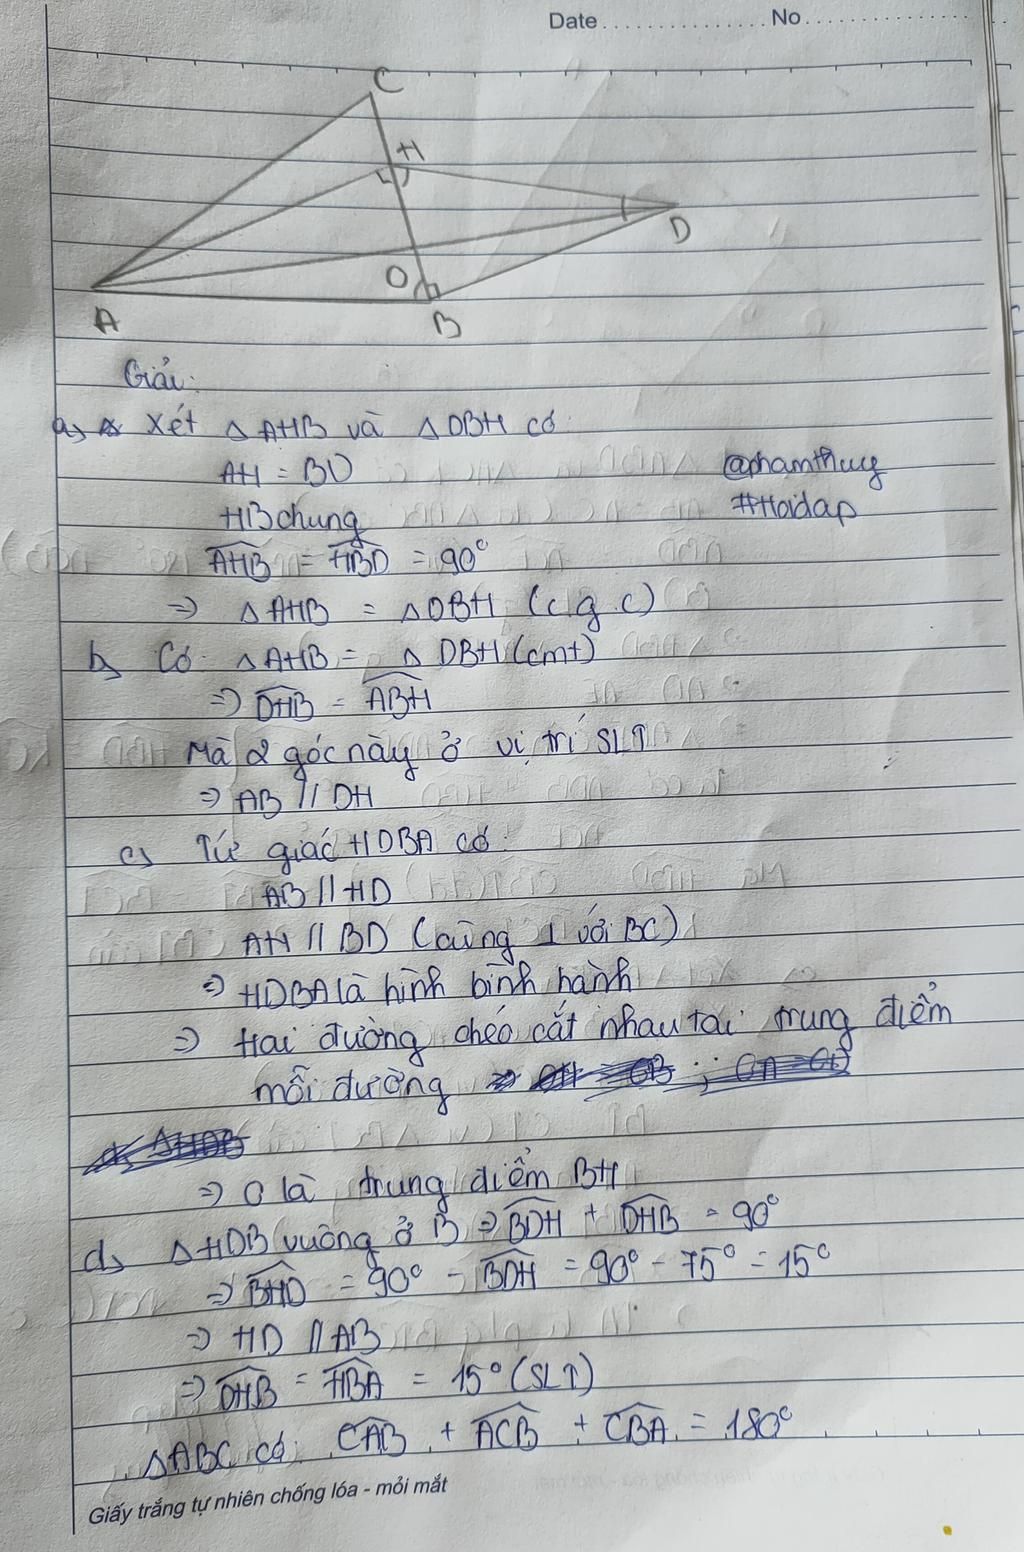 Date.................. No....................
C
H
D
O
A
B
Giải:
a, Xét △AHB và △DBH có:
AH = BD
@phamthuy
HB chung
#Hoidap
AHB = HBD = 90°
⇒ △AHB = △DBH (c.g.c)
b, Có △AHB = △DBH (cmt)
⇒ DHB = ABH
Mà 2 góc này ở vị trí SLT
⇒ AB // DH
c, Tứ giác HDBA có:
AB // HD
AH // BD (cùng ⊥ với BC)
⇒ HDBA là hình bình hành
⇒ Hai đường chéo cắt nhau tại trung điểm
mỗi đường
⇒ O là trung điểm BH
d, △HDB vuông ở B ⇒ BDH + DHB = 90°
⇒ BHD = 90° - BDH = 90° - 75° = 15°
⇒ HD // AB
⇒ DHB = HBA = 15° (SLT)
△ABC có: CAB + ACB + CBA = 180°
Giấy trắng tự nhiên chống lóa - mỏi mắt